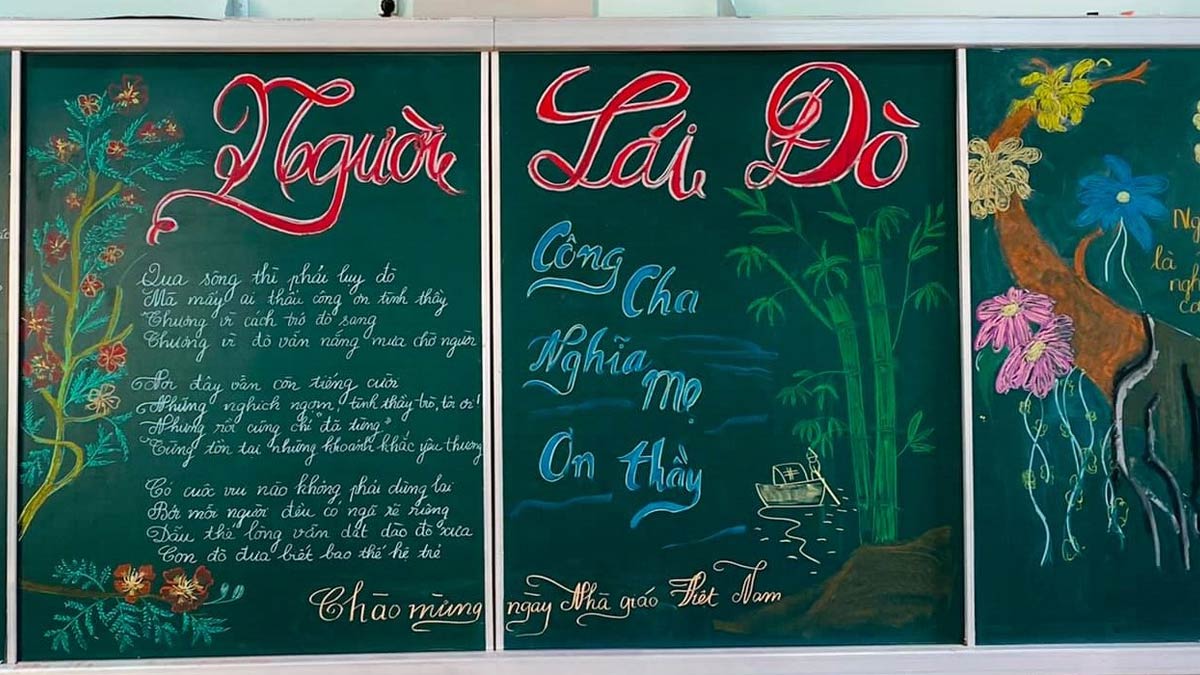 Người Lái Đò
Qua sông thì phải luỵ đò
Mà mấy ai thấu công ơn tình thầy
Thương vì cách trở đò sang
Thương vì đò vẫn nắng mưa chờ người
Nơi đây vẫn còn tiếng cười
Những nghịch ngợm, tình thầy trò, tôi ơi!
Nhưng rồi cũng chỉ "đã từng"
Từng tồn tại những khoảnh khắc yêu thương
Có cuộc vui nào không phải dừng lại
Bởi mỗi người đều có ngã rẽ riêng
Dẫu thế lòng vẫn dạt dào đò xưa
Con đò đưa biết bao thế hệ trẻ
Công Cha
Nghĩa Mẹ
Ơn thầy
Chào mừng ngày Nhà giáo Việt Nam
là